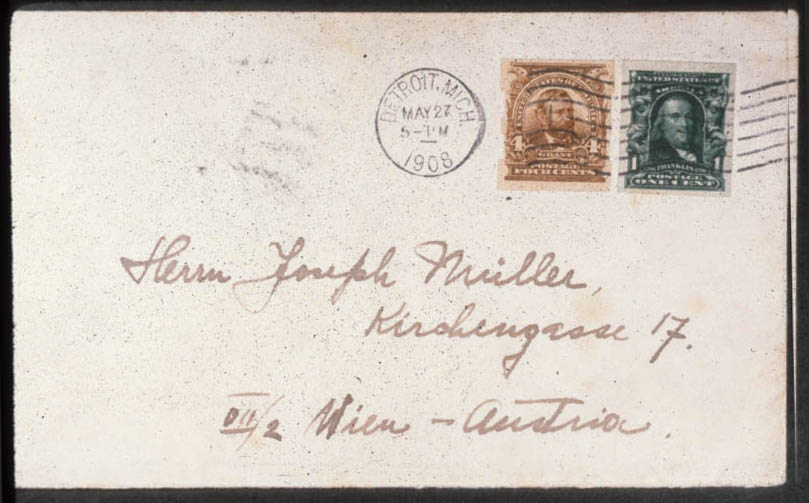 DETROIT, MICH.
MAY 27
5-PM
1908
UNITED STATES OF AMERICA
4 4
GRANT
POSTAGE
FOUR CENTS
UNITED STATES OF
AMERICA
1 1
FRANKLIN
POSTAGE
ONE CENT
Herrn Joseph Müller,
Kirchengasse 17.
VII/2 Wien – Austria.